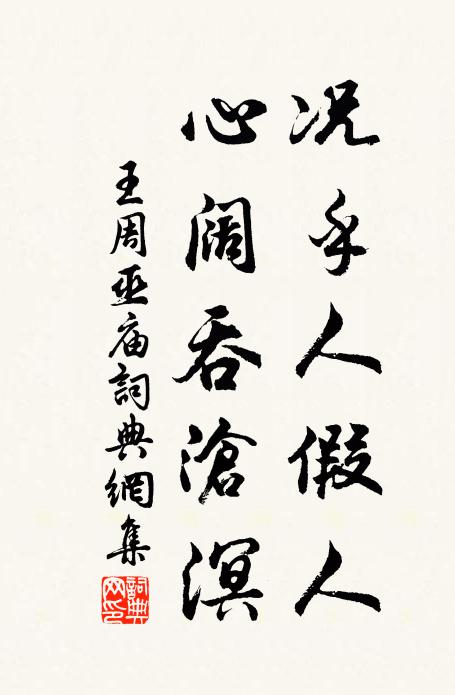 况乎人假人
心阔吞滄溟
王周巫庙詞典網集
詞典网印